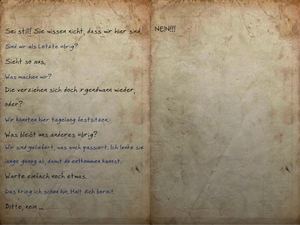 Sei still! Sie wissen nicht, dass wir hier sind.
Sind wir als Letzte übrig?
Sieht so aus.
Was machen wir?
Die verziehen sich doch irgendwann wieder,
oder?
Wir könnten hier tagelang festsitzen.
Was bleibt uns anderes übrig?
Wir sind geliefert, was auch passiert. Ich lenke sie
lange genug ab, damit du entkommen kannst.
Warte einfach noch etwas.
Das krieg ich schon hin. Halt dich bereit.
Bitte, nein ...
NEIN!!!